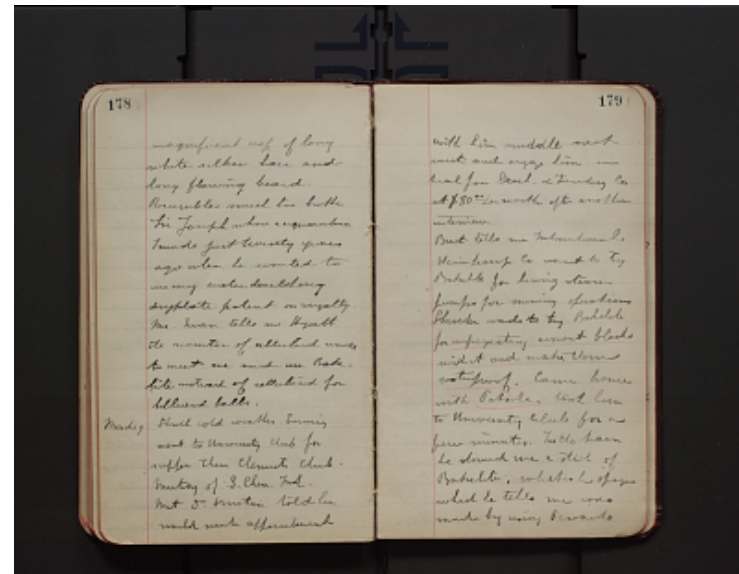 178
magnificent cap of long
white silken hair and
long flowing beard.
Resembles much his brother
Sir Joseph whose acquaintance
I made just twenty years
ago when he wanted to
my
patent on royalty.
Mr. Swan tells me Hyatt
the inventor of celluloid wants
to meet me and use Bake-
lite instead of celluloid for
billiard balls.
Still cold weather. Evening
went to University Club for
supper then Chemists Club.
Meeting of S. Chem. Ind.
Met Dr told him
would make appointment
179
with him middle next
week and engage him on
trial for
at $80 per month after another
interview.
tells me International
Co want to try
Bakelite for lining steam
pumps for mining operations
wants to try Bakelite
for impregnating cement blocks
with it and make them
waterproof. Came home
with took him
to University Club for a
few minutes.
he showed me a stick of
Bakelite, which is opaque
which he tells me was
made by using